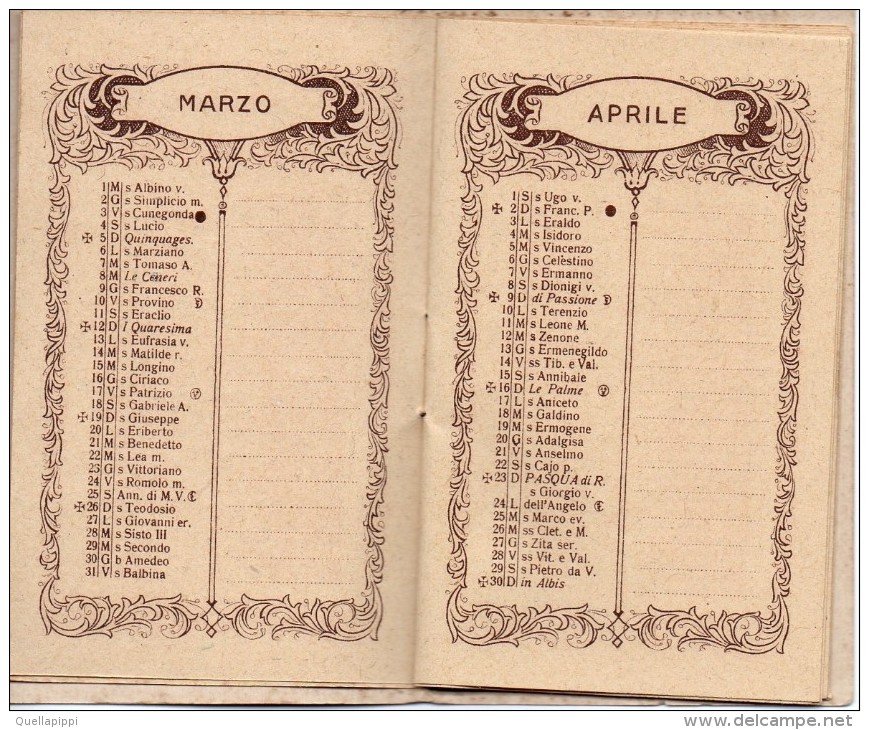 MARZO
1 M s Albino v.
2 G s Simplicio m.
3 V s Cunegonda
4 S s Lucio
✠ 5 D Quinquages.
6 L s Marziano
7 M s Tomaso A.
8 M Le Ceneri
9 G s Francesco R.
10 V s Provino
11 S s Eraclio
✠ 12 D I Quaresima
13 L s Eufrasia v.
14 M s Matilde r.
15 M s Longino
16 G s Ciriaco
17 V s Patrizio
18 S s Gabriele A.
✠ 19 D s Giuseppe
20 L s Eriberto
21 M s Benedetto
22 M s Lea m.
23 G s Vittoriano
24 V s Romolo m.
25 S Ann. di M. V.
✠ 26 D s Teodosio
27 L s Giovanni er.
28 M s Sisto III
29 M s Secondo
30 G b Amedeo
31 V s Balbina
APRILE
1 S s Ugo v.
✠ 2 D s Franc. P.
3 L s Eraldo
4 M s Isidoro
5 M s Vincenzo
6 G s Celestino
7 V s Ermanno
8 S s Dionigi v.
✠ 9 D di Passione
10 L s Terenzio
11 M s Leone M.
12 M s Zenone
13 G s Ermenegildo
14 V ss Tib. e Val.
15 S s Annibale
✠ 16 D Le Palme
17 L s Aniceto
18 M s Galdino
19 M s Ermogene
20 G s Adalgisa
21 V s Anselmo
22 S s Cajo p.
✠ 23 D PASQUA di R.
s Giorgio v.
24 L dell'Angelo
25 M s Marco ev.
26 M ss Clet. e M.
27 G s Zita ser.
28 V ss Vit. e Val.
29 S s Pietro da V.
✠ 30 D in Albis
Quellapippi
delcampe.net